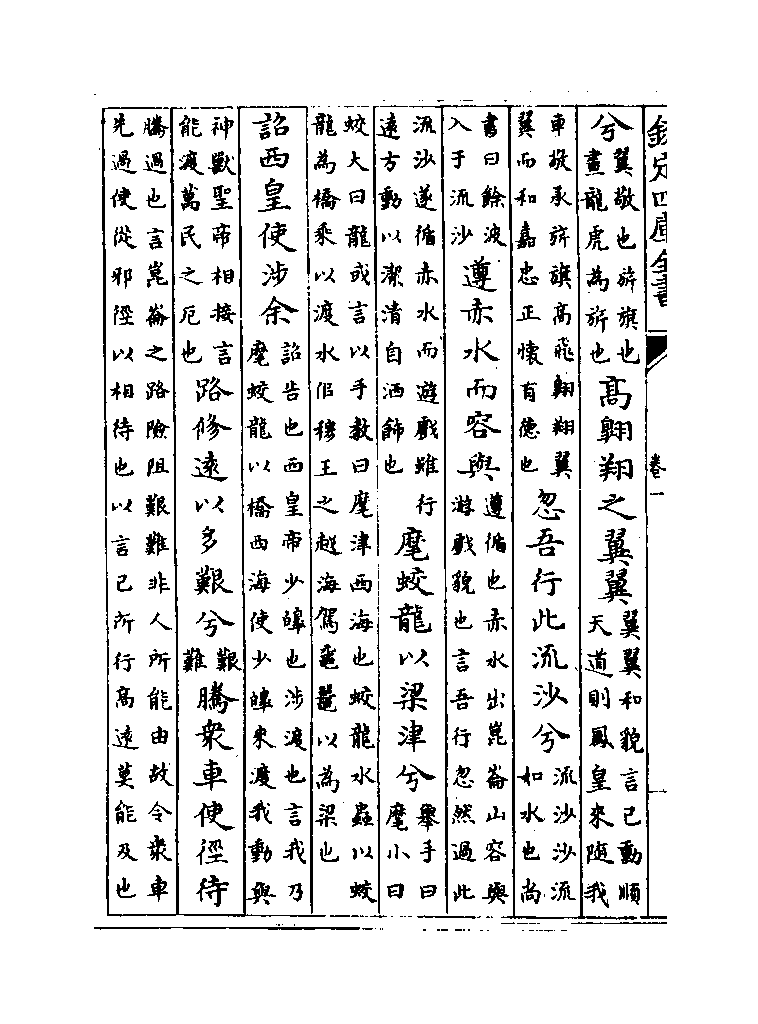 欽定四庫全書 卷一
兮翼敬也旂旗也畫龍虎為旂也高翺翔之翼翼翼翼和貌言己動順天道則鳳皇來隨我
車敬承旂旗高飛翺翔翼翼而和嘉忠正懷有德也忽吾行此流沙兮流沙沙流如水也尚
書曰餘波入于流沙遵赤水而容與遵循也赤水出崑崙山容與游戲貌也言吾行忽然過此
流沙遂循赤水而遊戲雖行逺方動以潔清自洒飾也麾蛟龍以梁津兮舉手曰麾小曰
蛟大曰龍或言以手教曰麾津西海也蛟龍水蟲以蛟龍為橋乗以渡水佀穆王之越海駕黿鼉以為梁也
詔西皇使涉余詔告也西皇帝少皥也涉渡也言我乃麾蛟龍以橋西海使少皥來渡我動與
神獸聖帝相接言能渡萬民之厄也路修逺以多艱兮艱難騰衆車使徑待
騰過也言崑崙之路險阻艱難非人所能由故令衆車先過使從邪徑以相待也以言己所行高逺莫能及也